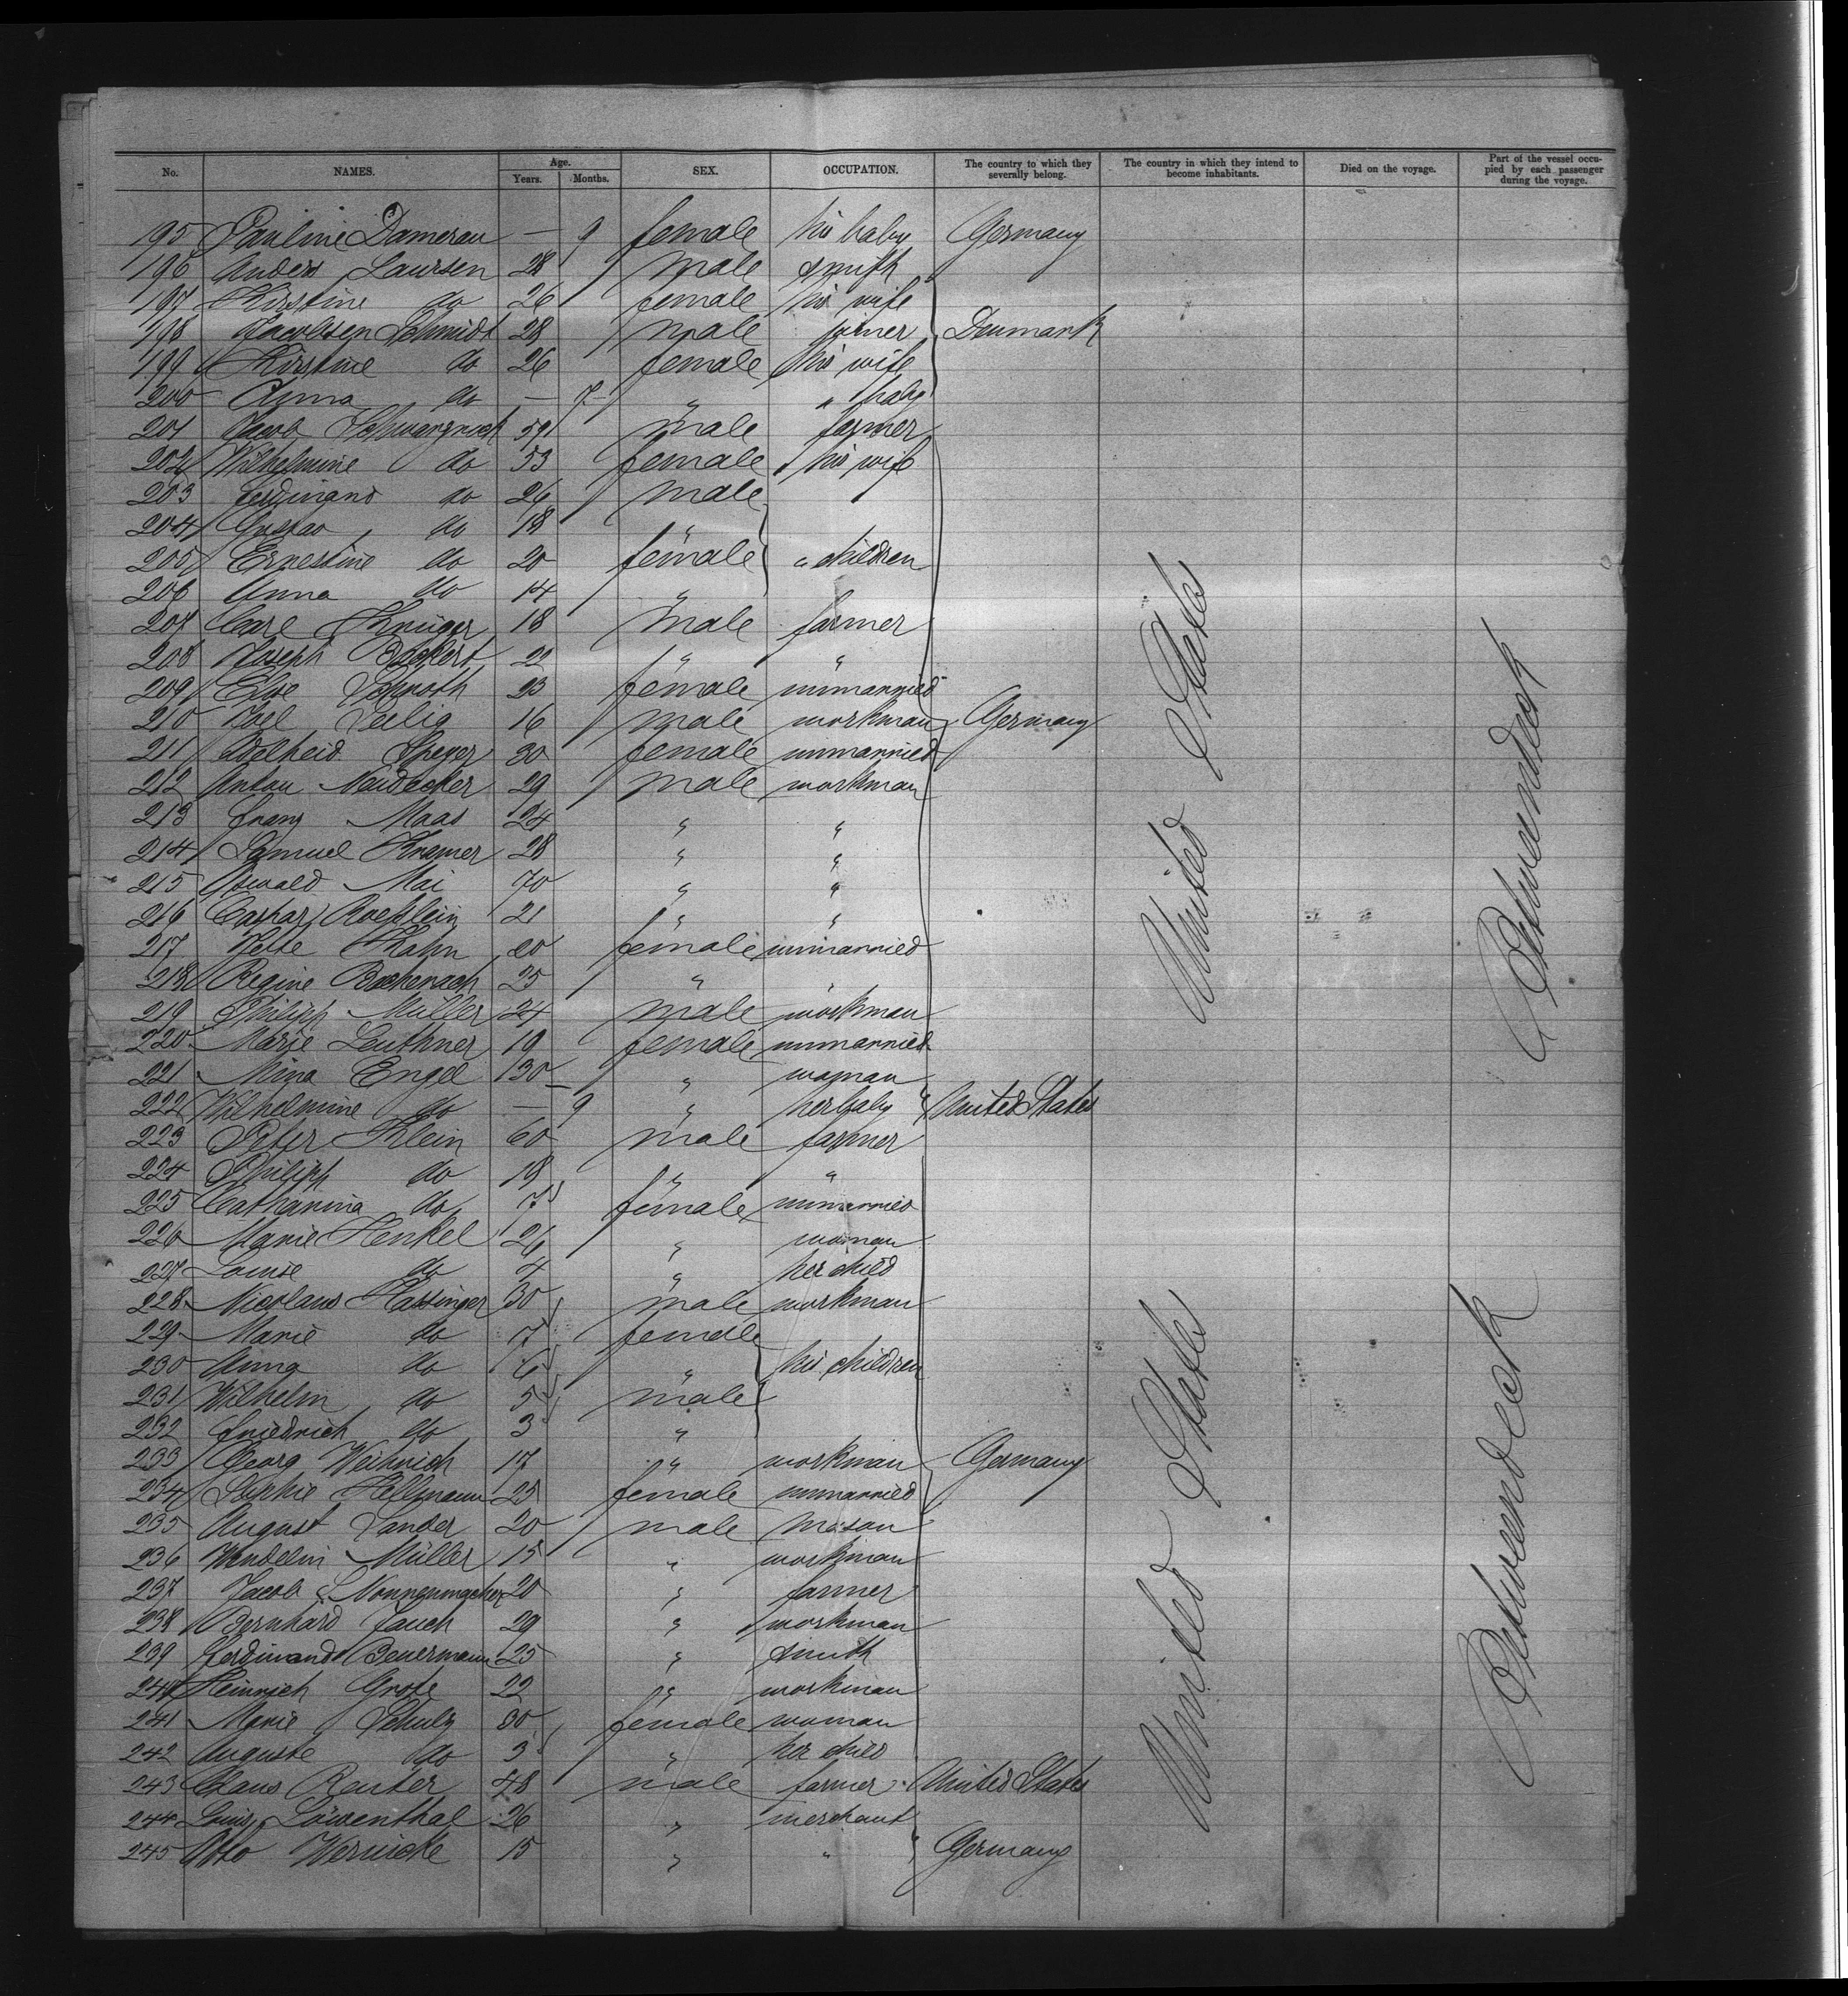 No. NAMES. Age. Years. Months. SEX. OCCUPATION. The country to which they severally belong. The country in which they intend to become inhabitants. Died on the voyage. Part of the vessel occupied by each passenger during the voyage.
195 Pauline Damerau — 9 female his baby Germany
196 Anders Laursen 28 male smith
197 Kirstine do 26 female his wife
198 Jacobsen Schmidt 28 male joiner Denmark
199 Kirstine do 26 female his wife
200 Anna do — 7 " " baby
201 Jacob 59 male farmer
202 Wilhelmine do 53 female his wife
203 Ferdinand do 26 male
204 Gustav do 18 "
205 Ernestine do 20 female " children
206 Anna do 14 "
207 Carl Krüger 18 male farmer
208 Joseph Bockert 22 " "
209 Else Schroth 23 female unmarried
210 Joel Seelig 16 male workman Germany
211 Adelheid Speyer 30 female unmarried
212 Anton Neudecker 29 male workman
213 Franz Maas 24 " "
214 Samuel Kramer 28 " "
215 Oswald Mai 70 " "
216 Caspar Roesslein 21 " "
217 Jette Kahn 20 female unmarried
218 Regine 25 " "
219 Philipp Müller 24 male workman
220 Marie Leuthner 19 female unmarried
221 Mina Engel 30 — " woman
222 Wilhelmine do — 9 " her baby United States
223 Peter Klein 60 male farmer
224 Philipp do 18 " "
225 Catharina do 7 female unmarried
226 Marie Henkel 26 " woman
227 Louise do 4 " her child
228 Nicolaus Hassinger 30 male workman
229 Marie do 7 female
230 Anna do 6 " his children
231 Wilhelm do 5 male
232 Friedrich do 3 "
233 Georg Weihrich 17 " workman Germany
234 Sophie Hellmann 25 female unmarried
235 August Sander 20 male mason
236 Wendelin Müller 15 " workman
237 Jacob Nonnenmacher 20 " farmer
238 Bernhard Jauch 29 " workman
239 Ferdinand Beuermann 25 " smith
240 Heinrich Grote 22 " workman
241 Marie Schulz 30 female woman
242 Auguste do 3 " her child
243 Claus Reuter 48 male farmer United States
244 Louis Löwenthal 26 " merchant
245 Otto Wernicke 15 " " Germany
United States
United States
Betweendeck
Betweendeck